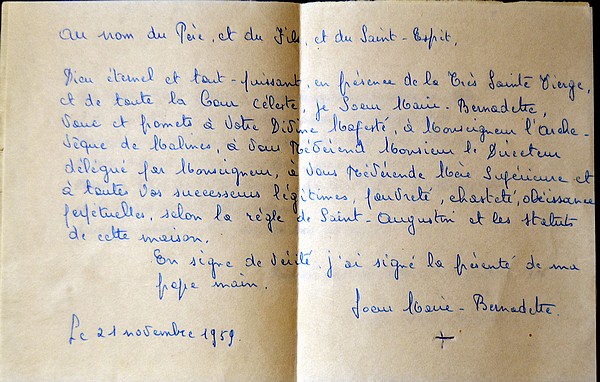 Au nom du Père, et du Fils, et du Saint-Esprit,
Dieu éternel et tout-puissant, en présence de la Très Sainte Vierge,
et de toute la Cour Céleste, je Soeur Marie-Bernadette,
voue et promets à Votre Divine Majesté, à Monseigneur l'arche-
vêque de Malines, à vous Révérend Monsieur le Directeur
délégué par Monseigneur, à vous Révérende Mère Supérieure et
à toutes vos successeurs légitimes, pauvreté, chasteté, obéissance
perpétuelles, selon la règle de Saint-Augustin et les statuts
de cette maison.
En signe de vérité, j'ai signé la présente de ma
propre main.
Soeur Marie-Bernadette.
Le 21 novembre 1959.